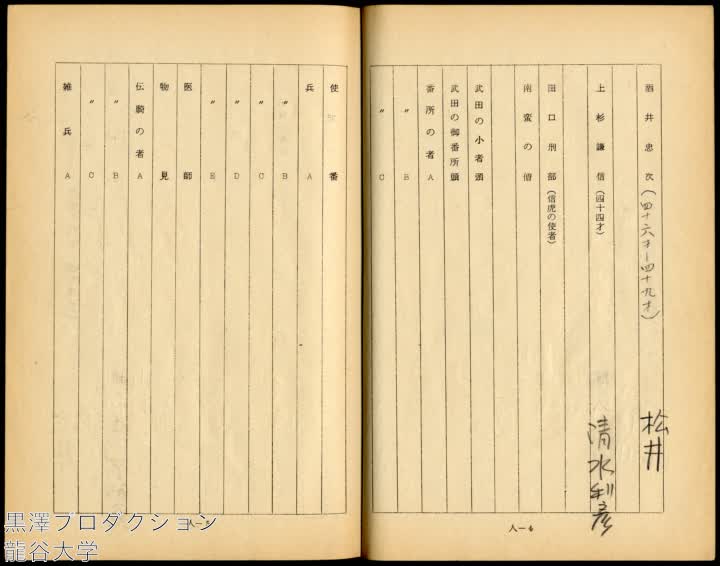 酒井忠次（四十六才ー四十九才） 松井
上杉謙信（四十四才） 清水利彦
田口刑部（信虎の使者）
南蛮の僧
武田の小者頭
武田の御番所頭
番所の者A
〃B
〃C
人ー4
使番
兵A
〃B
〃C
〃D
〃E
医師
物見
伝騎の者A
〃B
〃C
雑兵A
人ー5
黒澤プロダクション
龍谷大学